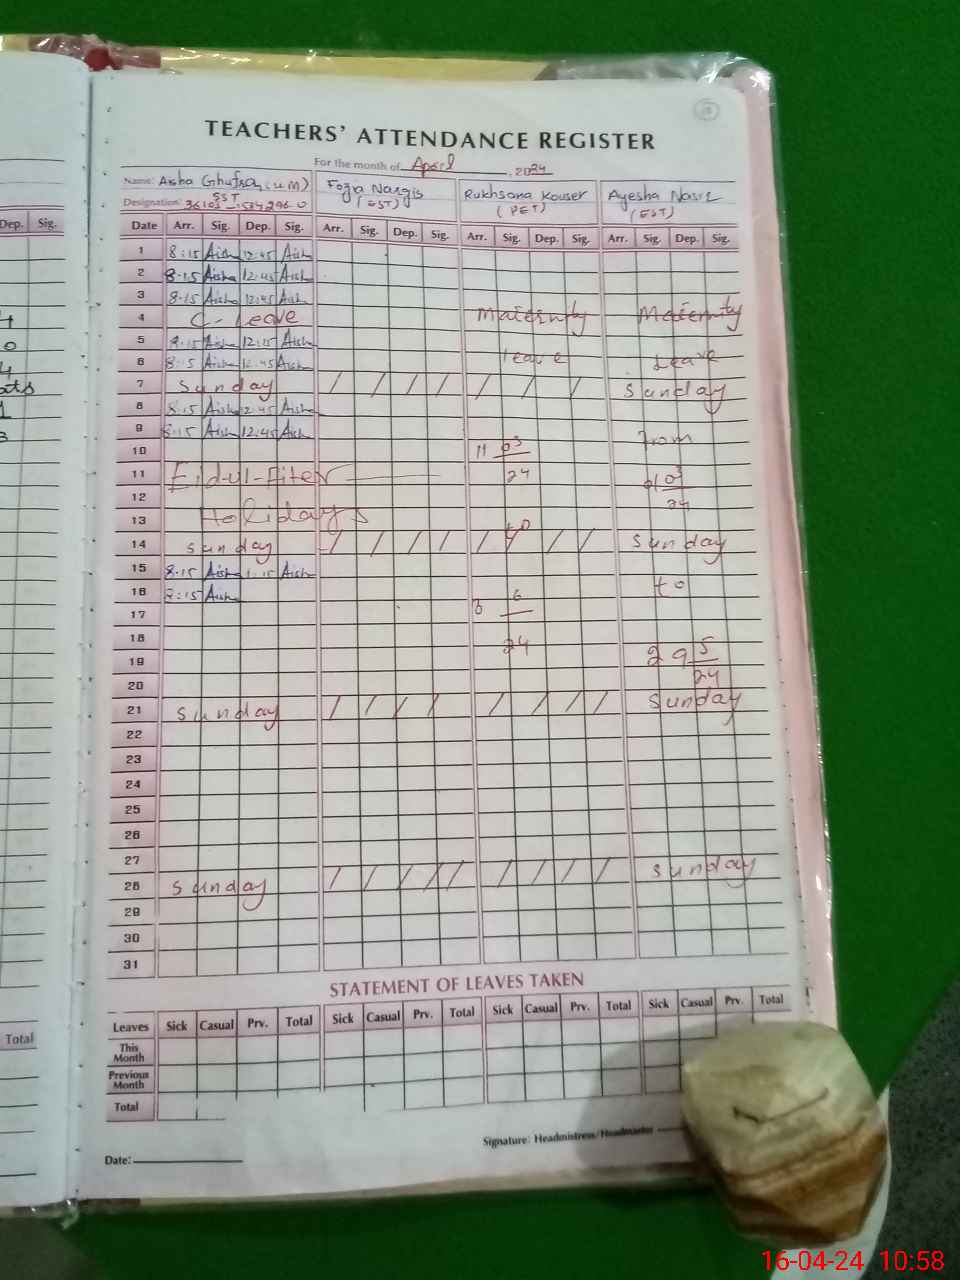 TEACHERS' ATTENDANCE REGISTER
For the month of April, 2024
Name: Aisha Ghufran (U.M) Fozia Nargis Rukhsana Kouser Ayesha Nasir
Designation: SST (EST) (PET) (EST)
Date Arr. Sig. Dep. Sig. Arr. Sig. Dep. Sig. Arr. Sig. Dep. Sig. Arr. Sig. Dep. Sig.
Dep. Sig.
1 8:15 Aish 12:45 Aish
2 8.15 Aisha 12:45 Aish
3 8.15 Aisha 12:45 Aish
4 C- Leave Maternity Maternity
5 8.15 Aisha 12:15 Aish
6 8:15 Aisha 12.45 Aish leave Leave
7 Sunday / / / / / / / Sunday
8 8.15 Aisha 12:45 Aish
9 8.15 Aisha 12:45 Aish From
10 11 03
11 Eid-ul-Fiter 24
12 24
13 Holidays to
14 Sunday / / / / / / / Sunday
15 8.15 Aisha 1.15 Aish to
16 8:15 Aish 6
17
18 24
19 29 5
20 24
21 Sunday / / / / / / / / Sunday
22
23
24
25
26
27
28 Sunday / / / / / / / / / Sunday
29
30
31
STATEMENT OF LEAVES TAKEN
Leaves Sick Casual Prv. Total Sick Casual Prv. Total Sick Casual Prv. Total Sick Casual Prv. Total
This
Month
Previous
Month
Total
Total
Signature: Headmistress/Headmaster
Date:
16-04-24 10:58